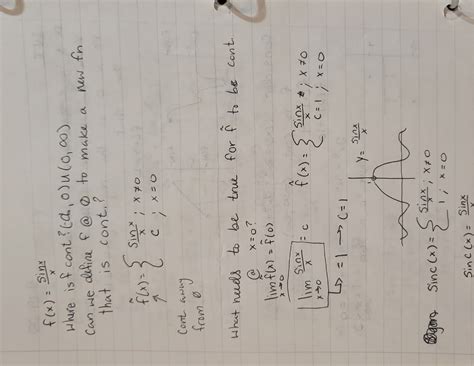 f(x) = sinx/x
where is f cont.? (-∞, 0) U (0, ∞)
Can we define f @ 0 to make a new fn
that is cont.?
f̂(x) = { sinx/x ; x≠0
c ; x=0
Cont away
from 0
What needs to be true for f̂ to be cont
@ x=0?
lim x→0 f̂(x) = f̂(0)
lim x→0 sinx/x = c
↳ =1 → c=1
f̂(x) = { sinx/x ; x≠0
c=1 ; x=0
y = sinx/x
Sinc(x) = { sinx/x ; x≠0
1 ; x=0
Sinc(x) = sinx/x